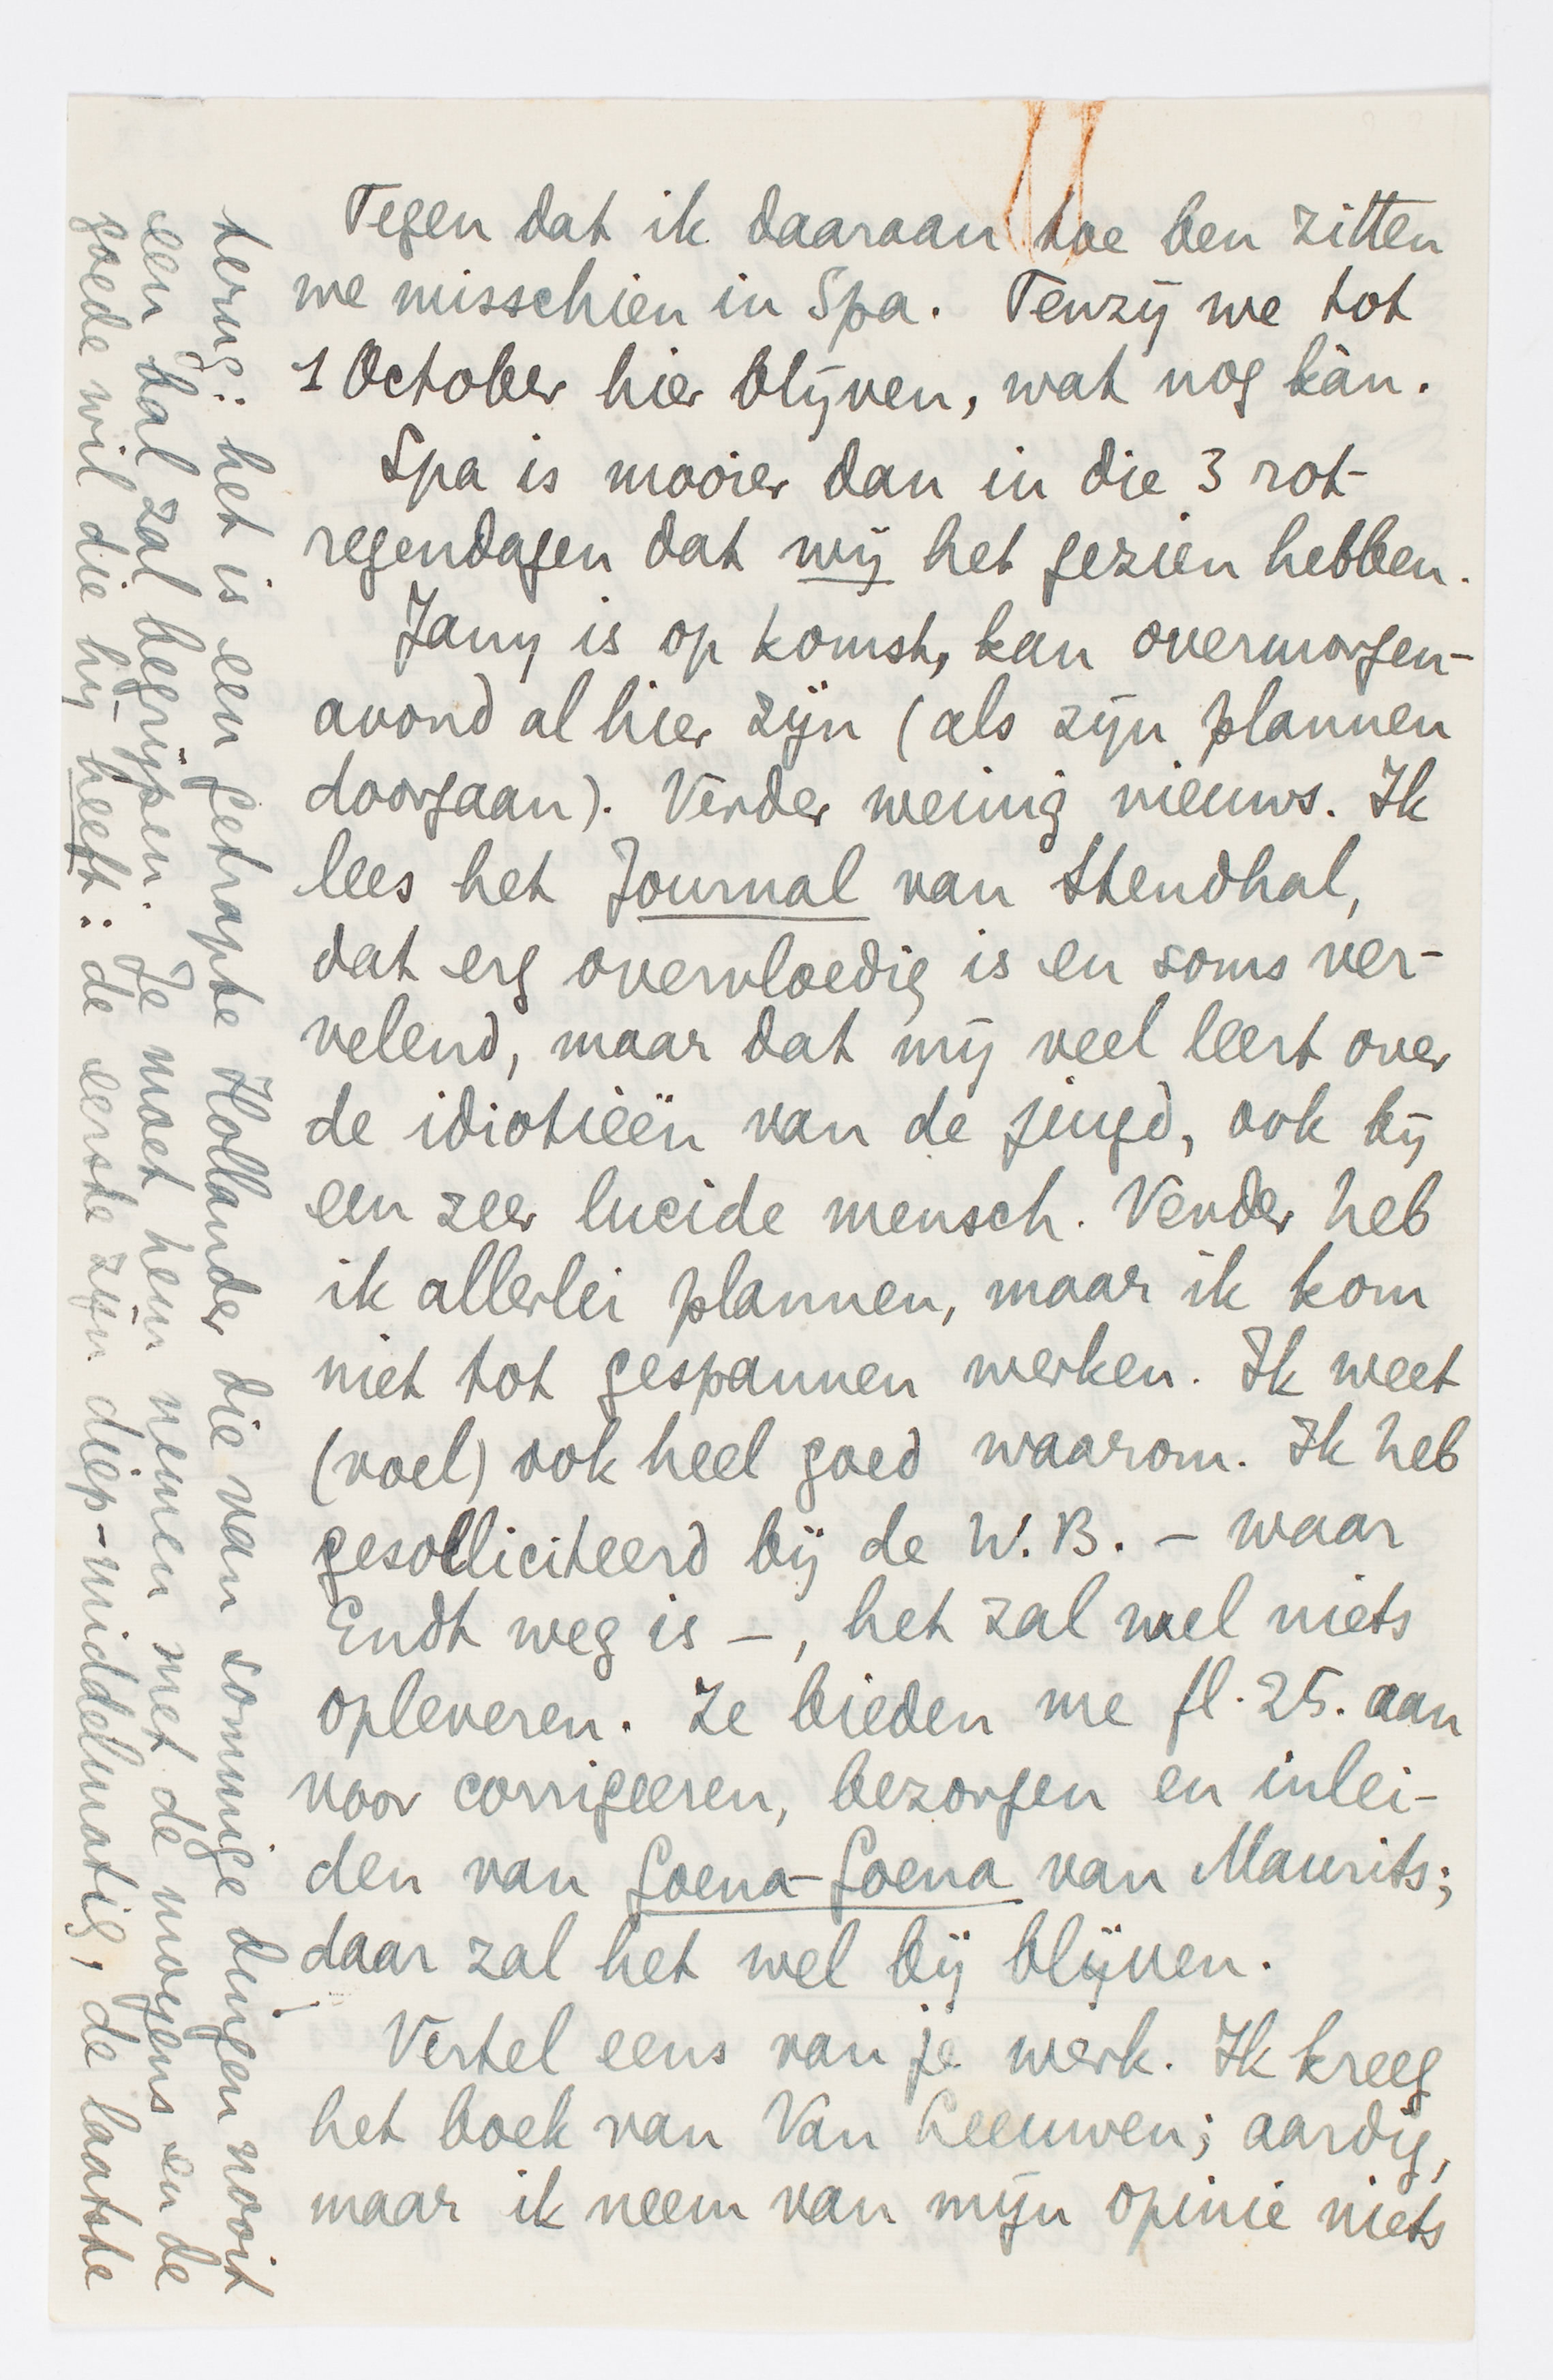 Tegen dat ik daaraan toe ben zitten
we misschien in Spa. Tenzij we tot
1 October hier blijven, wat nog kàn.
Spa is mooier dan in die 3 rot-
regendagen dat wij het gezien hebben.
Jany is op komst, kan overmorgen-
avond al hier zijn (als zijn plannen
doorgaan). Verder weinig nieuws. Ik
lees het Journal van Stendhal,
dat erg overvloedig is en soms ver-
velend, maar dat mij veel leert over
de idiotieën van de jeugd, ook bij
een zeer lucide mensch. Verder heb
ik allerlei plannen, maar ik kom
niet tot gespannen werken. Ik weet
(voel) ook heel goed waarom. Ik heb
gesolliciteerd bij de W.B. – waar
Endt weg is –, het zal wel niets
opleveren. Ze bieden me fl. 25. aan
voor corrigeeren, bezorgen en inlei-
den van Goena-Goena van Maurits;
daar zal het wel bij blijven.
Vertel eens van je werk. Ik kreeg
het boek van Van Leeuwen; aardig,
maar ik neem van mijn opinie niets
terug: het is een getrapte Hollander die van sommige dingen nooit
een bal zal begrijpen. Je moet hem nemen met de mogens en de
goede wil die hij heeft: de eerste zijn diep-middelmatig, de laatste